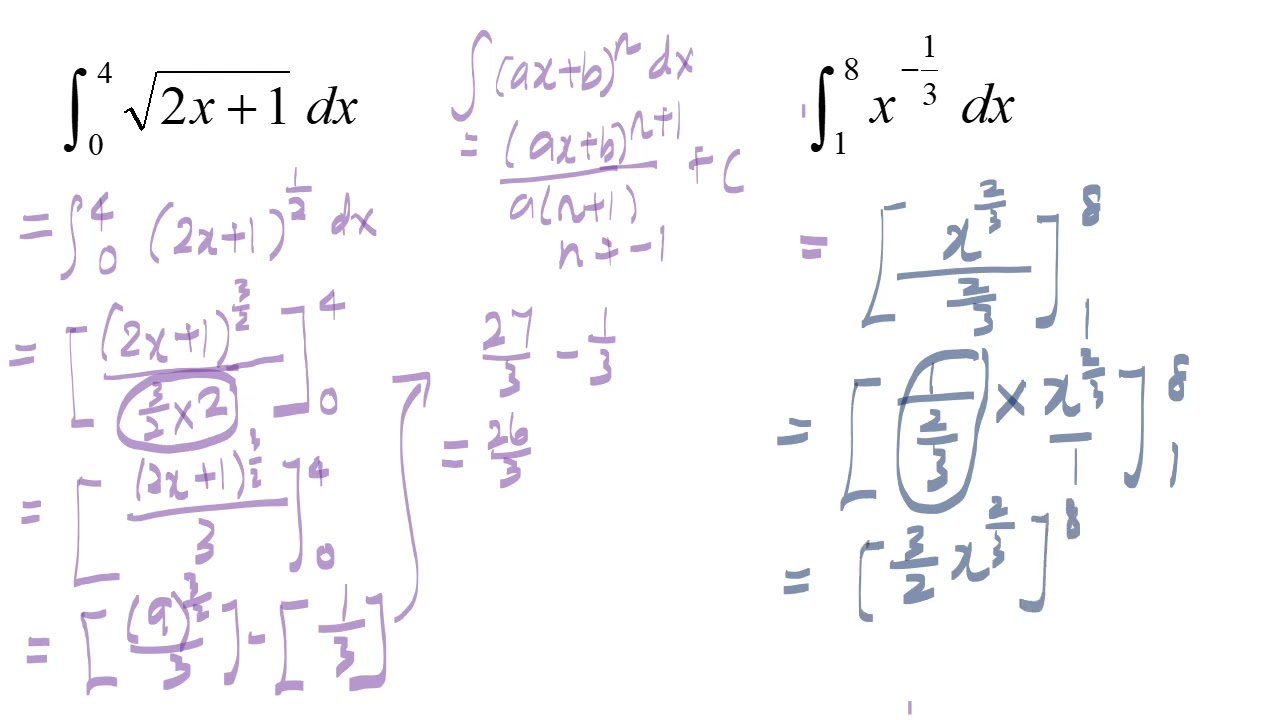 ∫₀⁴ √(2x+1) dx
= ∫₀⁴ (2x+1)^(1/2) dx
= [ (2x+1)^(3/2) / (3/2 × 2) ]₀⁴
= [ (2x+1)^(3/2) / 3 ]₀⁴
= [ (9)^(3/2) / 3 ] - [ 1/3 ]
∫ (ax+b)^n dx
= (ax+b)^(n+1) / a(n+1) + C
n ≠ -1
27/3 - 1/3
= 26/3
∫₁⁸ x^(-1/3) dx
= [ x^(2/3) / (2/3) ]₁⁸
= [ 1/(2/3) × x^(2/3)/1 ]₁⁸
= [ 3/2 x^(2/3) ]⁸